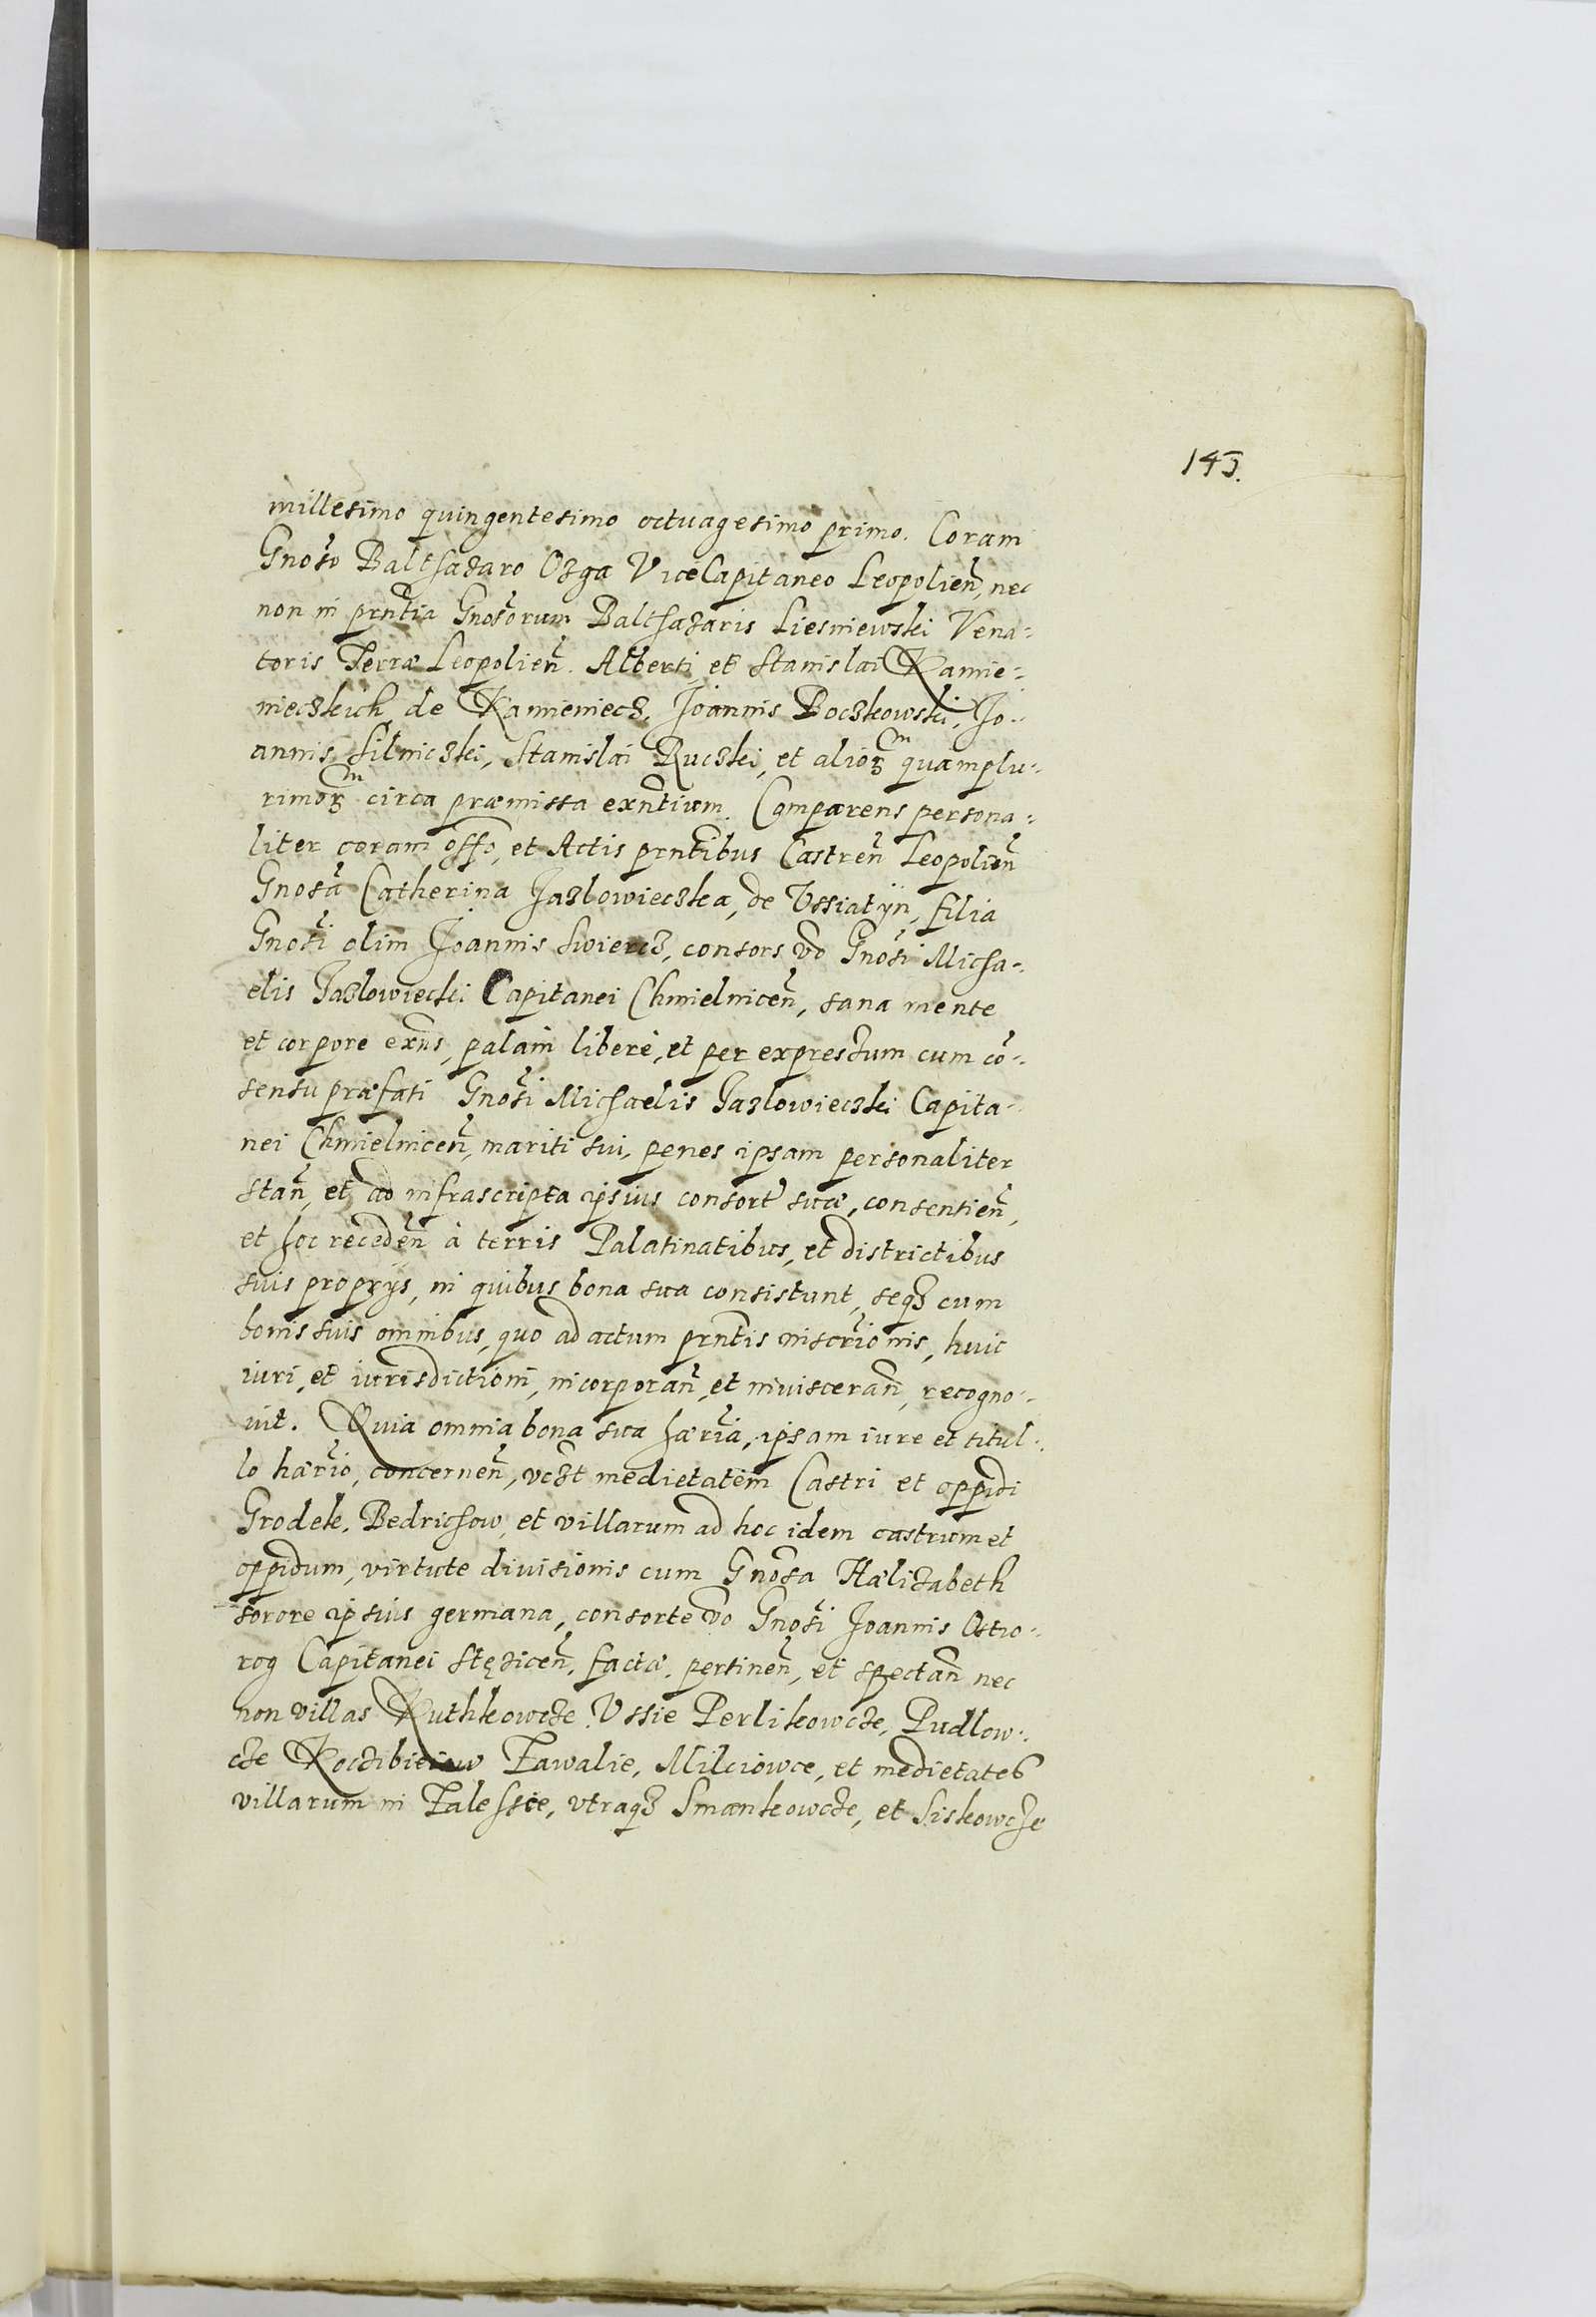 145.
millesimo quingentesimo octuagesimo primo. Coram
Gnoso Balthazaro Ozga ViceCapitaneo Leopolien, nec
non in prntia Gnosorum Balthazaris Liesniewski Vena=
toris Terræ Leopolien. Alberti et Stanislai Kamie=
nieczkich de Kamieniecz, Joannis Boczkowski, Jo=
annis Silniczki, Stanislai Ruczki, et alioꝝ quamplu=
rimoꝝ circa præmissa exntium. Comparens persona=
liter coram offo, et Actis prntibus Castren Leopolien
Gnosa Catherina Jazlowieczka, de Vssiatÿn, filia
Gnosi olim Joannis Swiercz, consors vo Gnosi Micha=
elis Jazlowiecki Capitanei Chmielnicen, sana mente
et corpore exns, palam liberè, et per expressum cum cō=
sensu præfati Gnosi Michaelis Jazlowieczki Capita=
nei Chmielnicen, mariti sui, penes ipsam personaliter
stan, et ad infrascripta ipsius consort suæ, consentien,
et hoc receden à terris Palatinatibus, et districtibus
suis proprÿs, in quibus bona sua consistunt, seqȝ cum
bonis suis omnibus, quo ad actum prntis inscrionis, huic
iuri, et iurisdictioni, incorporan, et inuisceran, recogno=
uit. Quia omnia bona sua hæria, ipsam iure et titul=
lo hærio, concernen, vczt medietatem Castri et oppidi
Grodek, Bedrichow, et villarum ad hoc idem castrum et
oppidum, virtute diuisionis cum Gnosa Hælizabeth
sorore ipsius germana, consorte vo Gnosi Joannis Ostro=
rog Capitanei Stęzicen, factæ, pertinen, et spectan nec
non villas Kuthkowcze, Vssie Perlikowcze, Pudlow=
cze Zawalie, Milciowce, et medietates
villarum in Zalessie, vtraqȝ Smankowcze, et Siskowcze